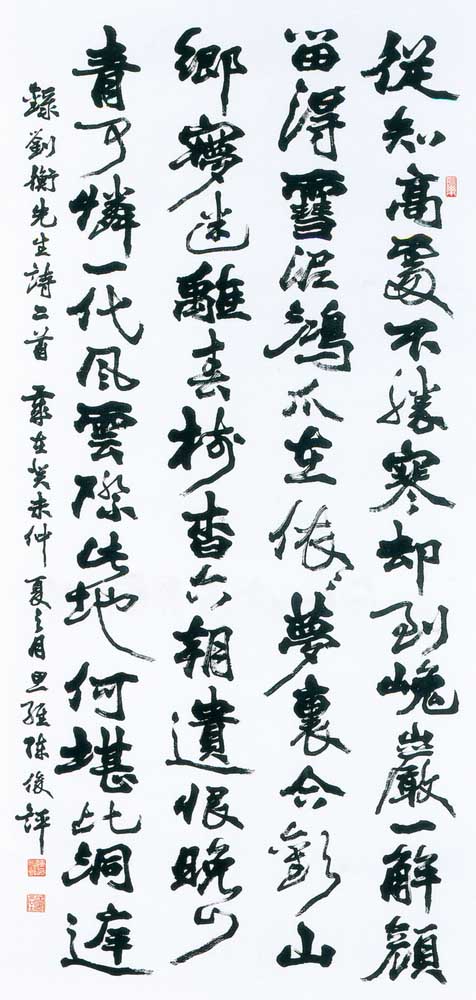 從知高處不勝寒却到巉巖一解顏
留得雪泥鴻爪在依々夢裏合歡山
鄉夢迷離春樹杳六朝遺恨晚山
青可憐一代風雲際此地何堪比洞庭
錄劉衡先生詩二首 歲在癸未仲夏之月 陳俊評